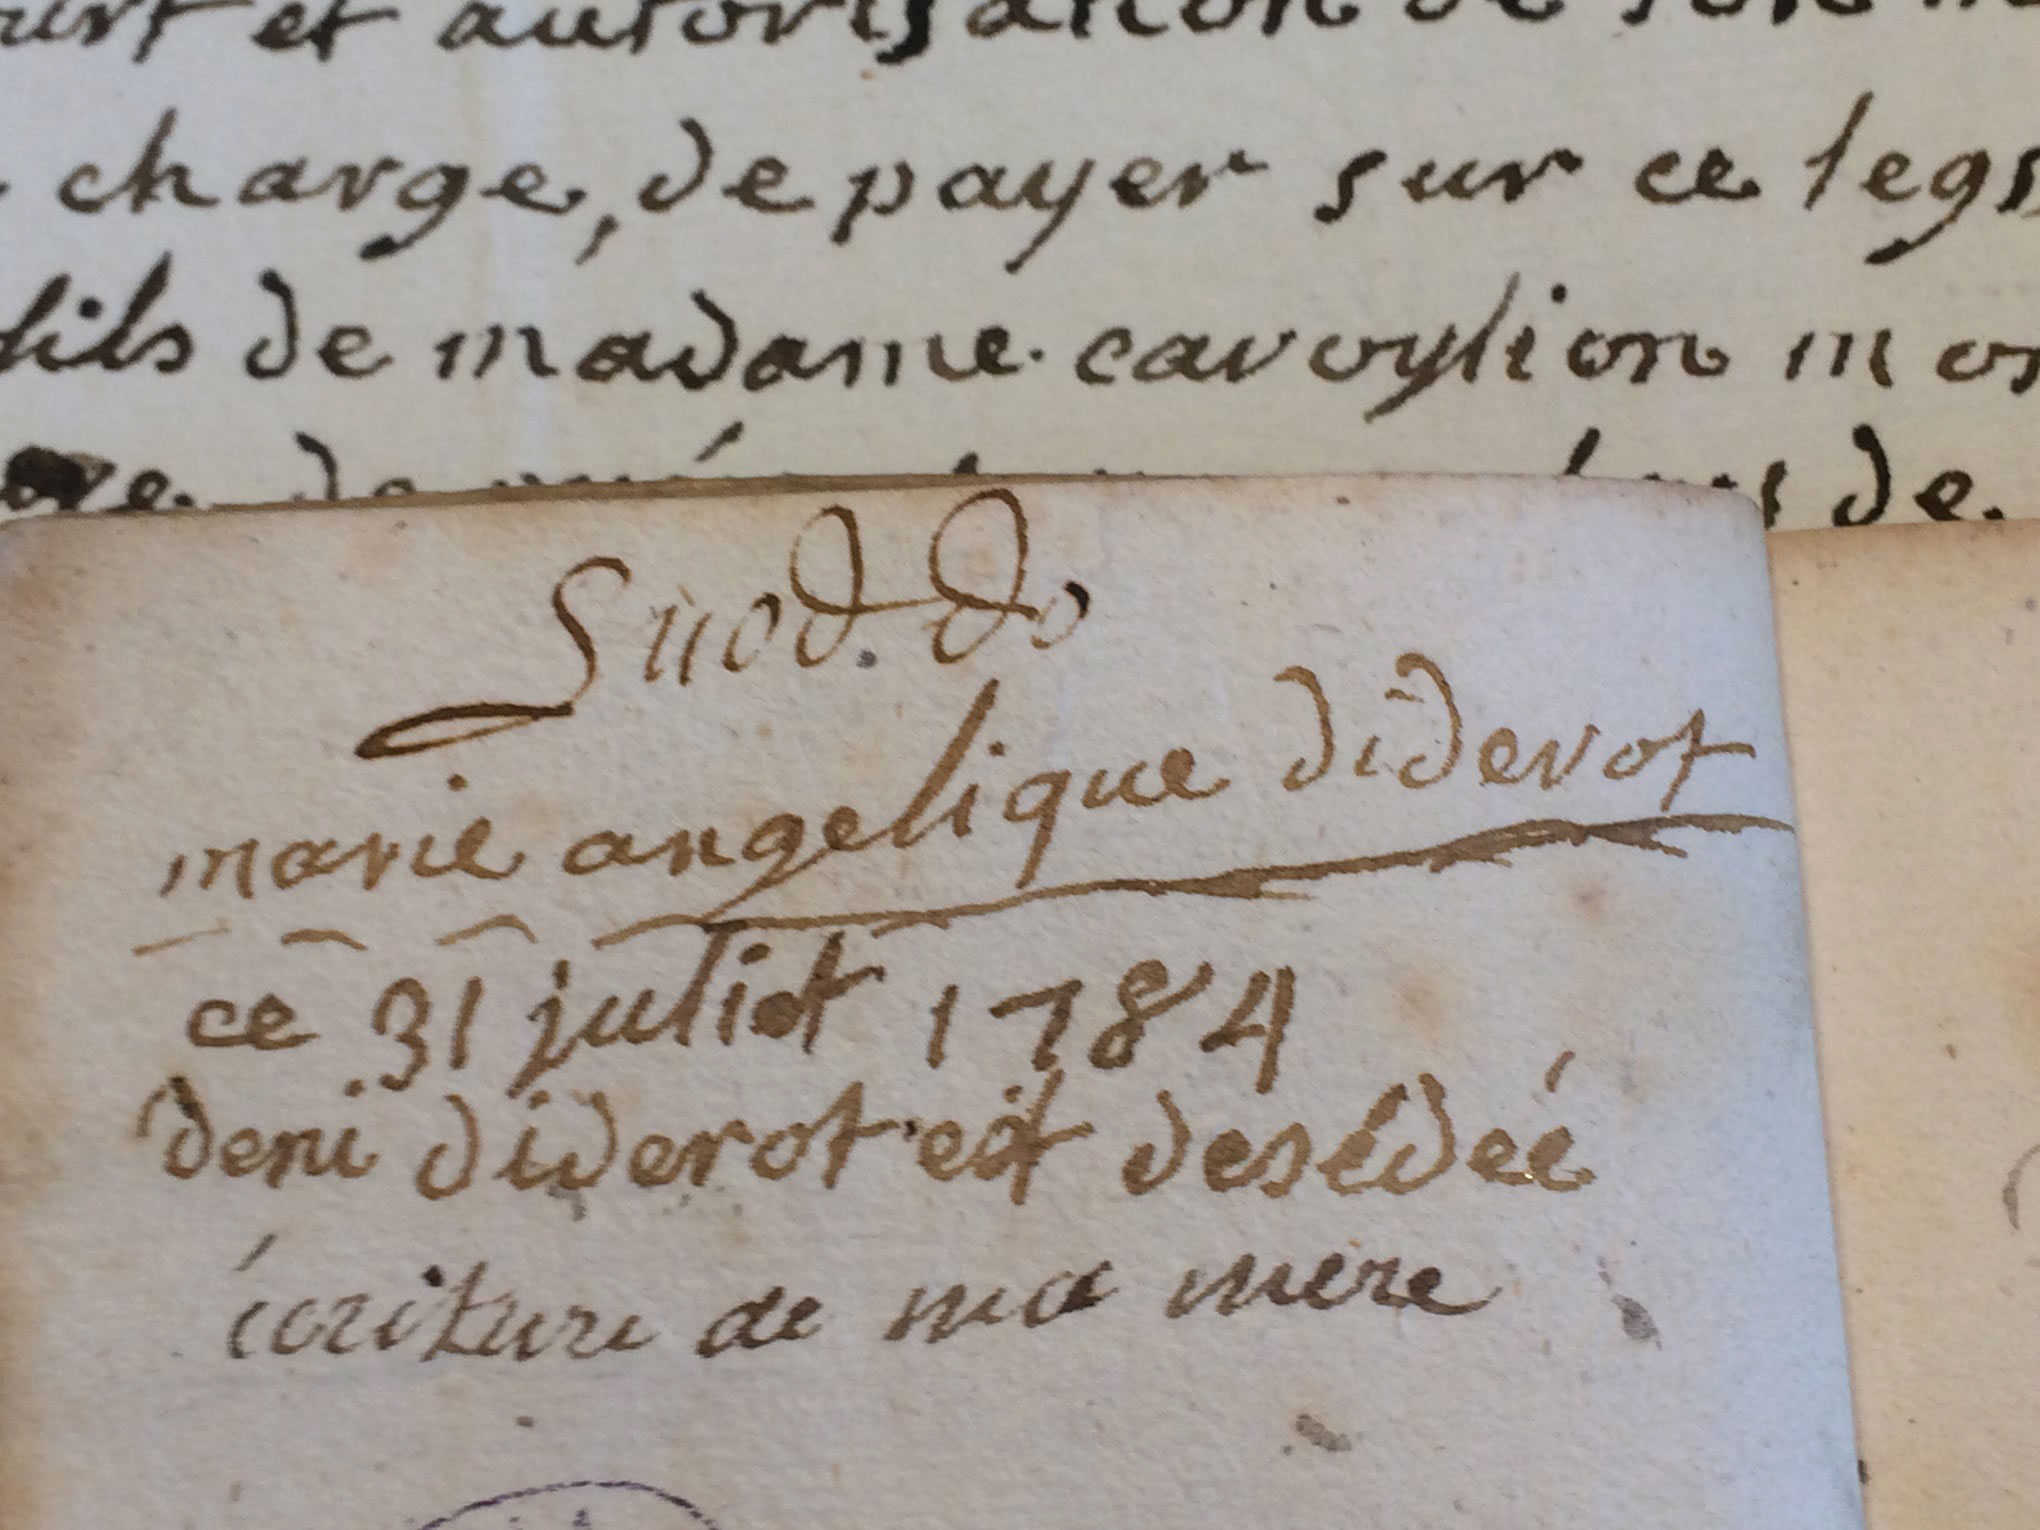 et autorisation de
charge, de payer sur ce legs
fils de madame caroylion
de.
marie angelique diderot
ce 31 juliet 1784
deni diderot est desédeé
écriture de ma mere